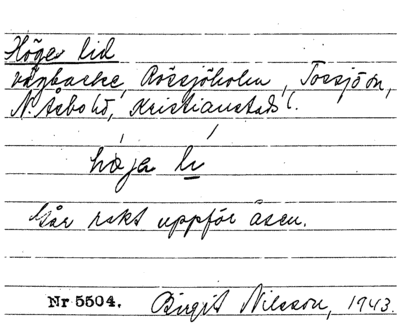 Höge lid
vägbacke, Rössjöholm, Tossjön,
N. Åsbo hd, Kristianstads l.
höja li
Går rakt uppför åsen.
Nr 5504. Birgit Nilsson, 1943.